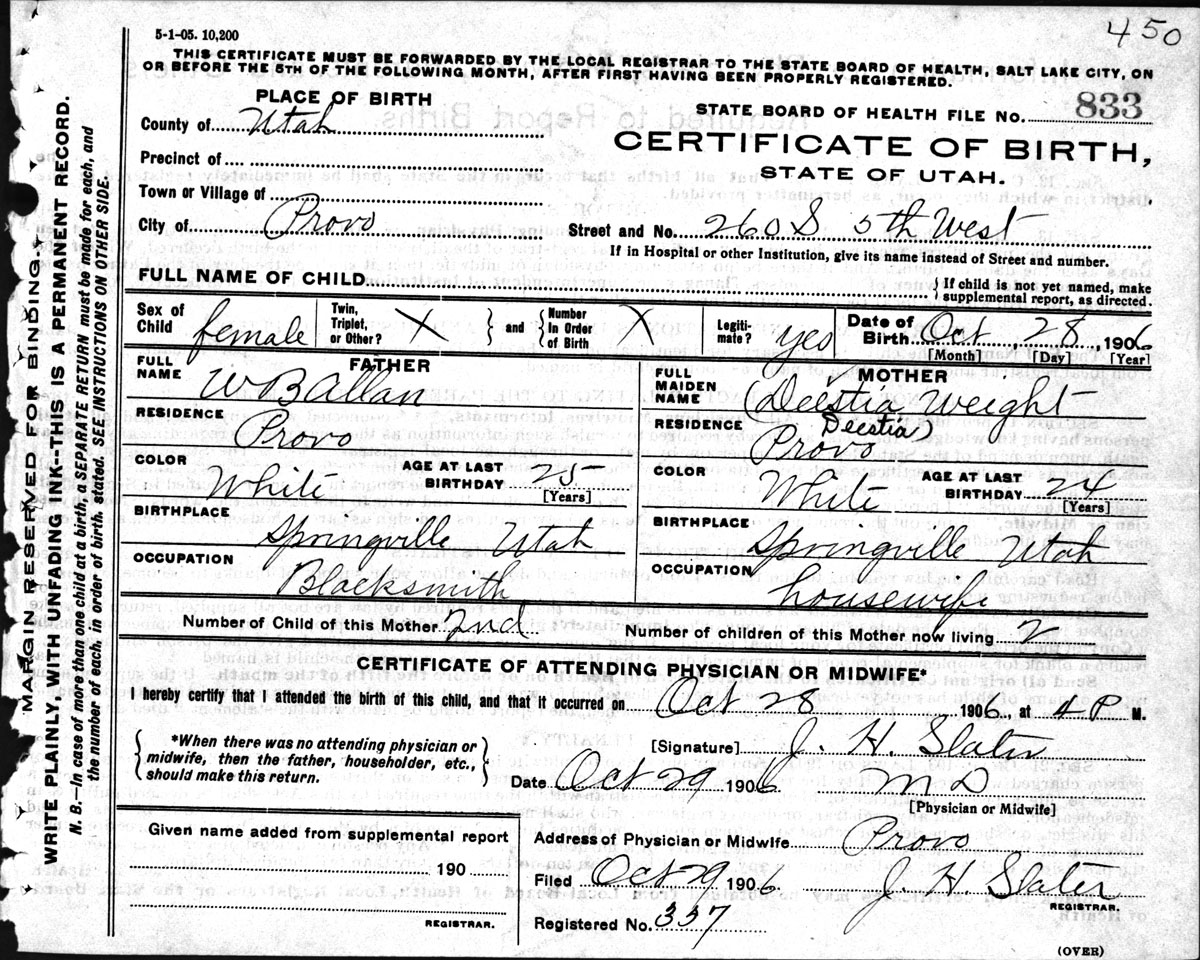 450
5-1-05. 10,200
THIS CERTIFICATE MUST BE FORWARDED BY THE LOCAL REGISTRAR TO THE STATE BOARD OF HEALTH, SALT LAKE CITY, ON
OR BEFORE THE 5TH OF THE FOLLOWING MONTH, AFTER FIRST HAVING BEEN PROPERLY REGISTERED.
PLACE OF BIRTH
STATE BOARD OF HEALTH FILE NO. 833
County of Utah
CERTIFICATE OF BIRTH,
Precinct of
STATE OF UTAH.
Town or Village of
City of Provo
Street and No. 260 S 5th West
If in Hospital or other Institution, give its name instead of Street and number.
FULL NAME OF CHILD
{ If child is not yet named, make
supplemental report, as directed.
Sex of Child female Twin, Triplet, or Other? X } and { Number In Order of Birth X Legiti-mate? yes Date of Birth Oct, 28, 1906
[Month] [Day] [Year]
FATHER
FULL NAME W B Allan
RESIDENCE Provo
COLOR White AGE AT LAST BIRTHDAY 25 [Years]
BIRTHPLACE Springville Utah
OCCUPATION Blacksmith
MOTHER
FULL MAIDEN NAME (Deestia Weight
Deestia)
RESIDENCE Provo
COLOR White AGE AT LAST BIRTHDAY 24 [Years]
BIRTHPLACE Springville Utah
OCCUPATION housewife
Number of Child of this Mother 2nd Number of children of this Mother now living 2
CERTIFICATE OF ATTENDING PHYSICIAN OR MIDWIFE*
I hereby certify that I attended the birth of this child, and that it occurred on Oct 28 1906, at 4 P M.
{ *When there was no attending physician or
midwife, then the father, householder, etc.,
should make this return. }
[Signature] J. H. Slater
Date Oct 29 1906 M D
[Physician or Midwife]
Given name added from supplemental report
190
REGISTRAR.
Address of Physician or Midwife Provo
Filed Oct 29 1906 J. H. Slater
REGISTRAR.
Registered No. 337
(OVER)
MARGIN RESERVED FOR BINDING.
WRITE PLAINLY, WITH UNFADING INK—THIS IS A PERMANENT RECORD.
N. B.—In case of more than one child at a birth, a SEPARATE RETURN must be made for each, and
the number of each, in order of birth, stated. SEE INSTRUCTIONS ON OTHER SIDE.